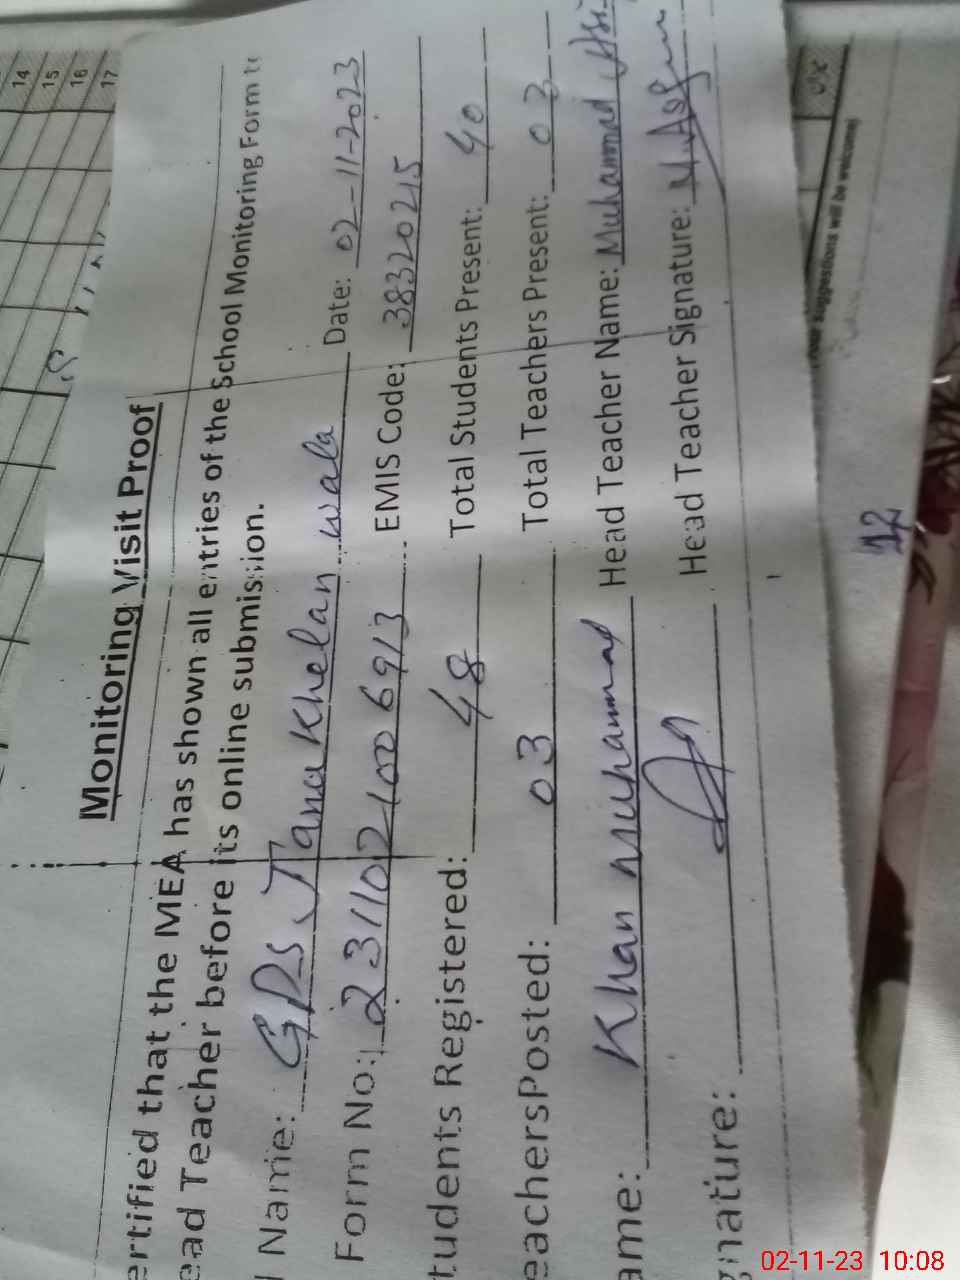 Monitoring Visit Proof
ertified that the MEA has shown all entries of the School Monitoring Form to
ead Teacher before its online submission.
l Name: GPS Jana Khelan wala Date: 02-11-2023
Form No: 2311021006913 EMIS Code: 38320215
tudents Registered: 48 Total Students Present: 40
eachersPosted: 03 Total Teachers Present: 03
ame: Khan Muhammad Head Teacher Name: Muhammad
gnature: Head Teacher Signature:
14
15
16
17
suggestions will be welcome)
12
02-11-23 10:08